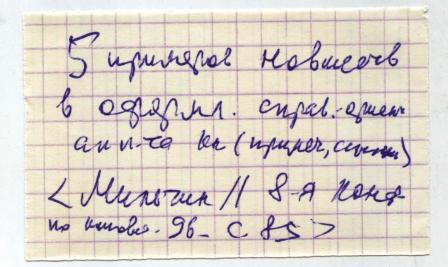 5 примеров новшеств
в оформл. справ.-ориен.
апп-та кн (примеч, ссылки)
<Мильчин // 8-я конф
по книговед. 96- С. 85>